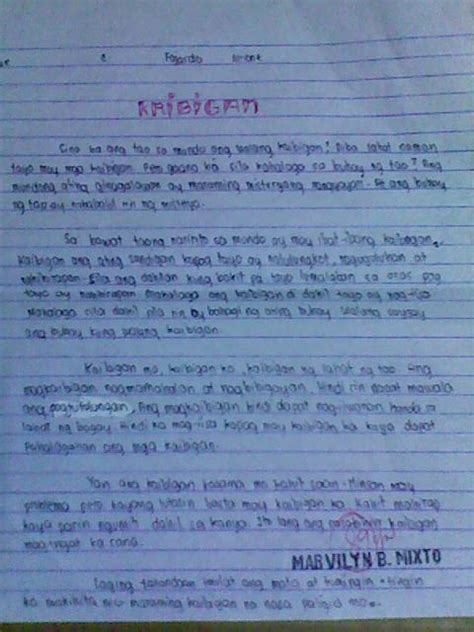 Fajardo Simone
KAIBIGAN
Sino ba ang tao sa mundo ang walang kaibigan? Diba lahat naman
tayo may mga kaibigan. Pero gaano ba sila kahalaga sa buhay ng tao? Ang
mundong ating ginagalawan ay maraming misteryong nangyayari. At ang buhay
ng tao ay nababalot rin ng misteryo.
Sa bawat taong narinto sa mundo ay may ibat-ibang kaibigan.
Kaibigan ang ating sandigan kapag tayo ay nalulungkot,
Sila ang dahilan kung bakit pa tayo lumalaban sa oras pag
tayo ay nahihirapan mahalaga ang kaibigan di dahil tayo ay nag-iisa
mahalaga sila dahil sila rin ay bahagi ng ating buhay walang saysay
ang buhay kung walang kaibigan.
Kaibigan mo, kaibigan ko, kaibigan ng lahat ng tao. Ang
magkaibigan nagmamahalan at nagbibigayan. Hindi rin dapat mawala
ang pagtutulungan, Ang magkaibigan hindi dapat nag-iiwanan handa sa
lahat ng bagay. Hindi ka mag-iisa kapag may kaibigan ka kaya dapat
pahalagahan ang mga kaibigan.
Yan ang kaibigan kasama mo kahit saan. Minsan may
problema pero kayang lutasin basta may kaibigan ka. Kahit mahirap
kaya parin ngumiti dahil sa kanya. Ito lang ang kaibigan
mag-ingat ka sana.
MARVILYN B. MIXTO
Laging tatandaan imulat ang mata at tumingin-tingin
ka makikita mo maraming kaibigan na nasa paligid mo.